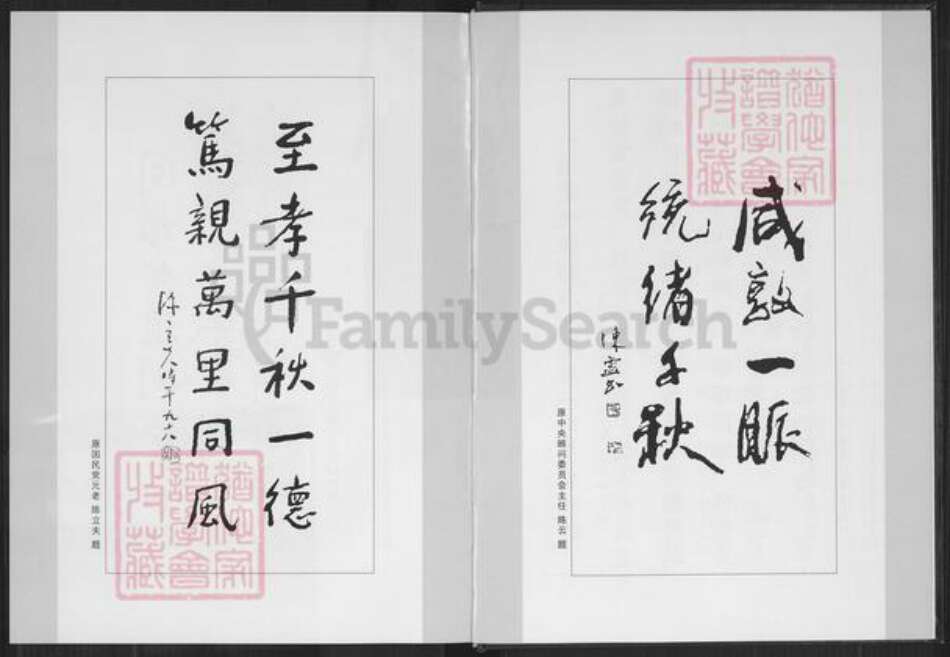 猶他家
譜學會
收藏
咸敦一脈
統緒千秋
陳雲书
原中央顾问委员会主任 陈云 题
至孝千秋一德
篤親萬里同風
陳立夫時年九十八
原国民党元老 陈立夫 题
猶他家
譜學會
收藏
FamilySearch